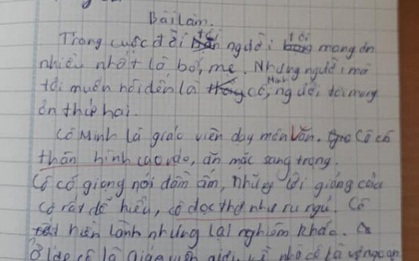 Bài làm.
Trong cuộc đời tôi người tôi mang ơn
nhiều nhất là bố, mẹ. Nhưng người mà
tôi muốn nói đến là cô Minh, người tôi mang
ơn thứ hai.
Cô Minh là giáo viên dạy môn Văn. Cô có
thân hình cao ráo, ăn mặc sang trọng.
Cô có giọng nói đầm ấm, những lời giảng của
cô rất dễ hiểu, cô đọc thơ như ru ngủ. Cô
hiền lành nhưng lại nghiêm khắc.
Ở lớp cô là giáo viên